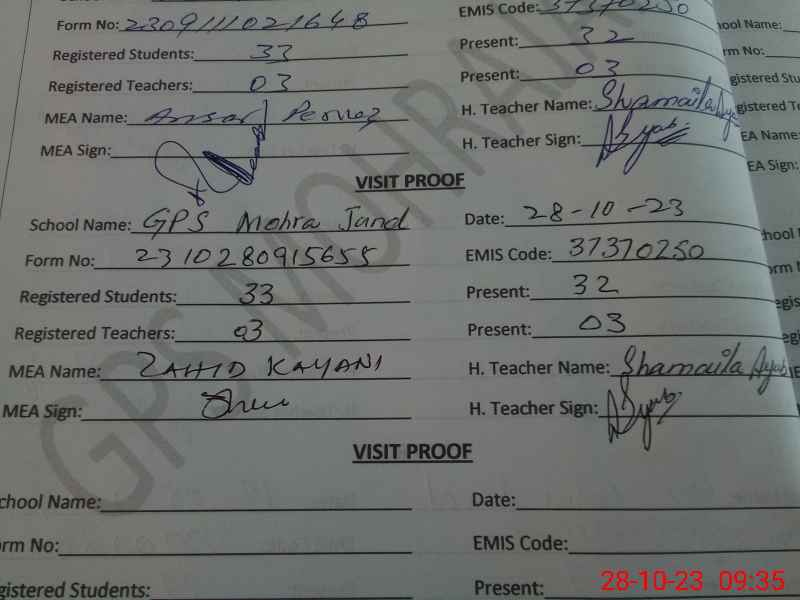 Form No: 2309111021648 EMIS Code: 37370250
Registered Students: 33 Present: 32
Registered Teachers: 03 Present: 03
MEA Name: Ansar Pervez H. Teacher Name: Shamaila Ayub
MEA Sign: H. Teacher Sign: Ayub
VISIT PROOF
School Name: GPS Mohra Jand Date: 28-10-23
Form No: 2310280915655 EMIS Code: 37370250
Registered Students: 33 Present: 32
Registered Teachers: 03 Present: 03
MEA Name: ZAHID KAYANI H. Teacher Name: Shamaila Ayub
MEA Sign: H. Teacher Sign: Ayub
VISIT PROOF
chool Name: Date:
rm No: EMIS Code:
gistered Students: Present:
28-10-23 09:35